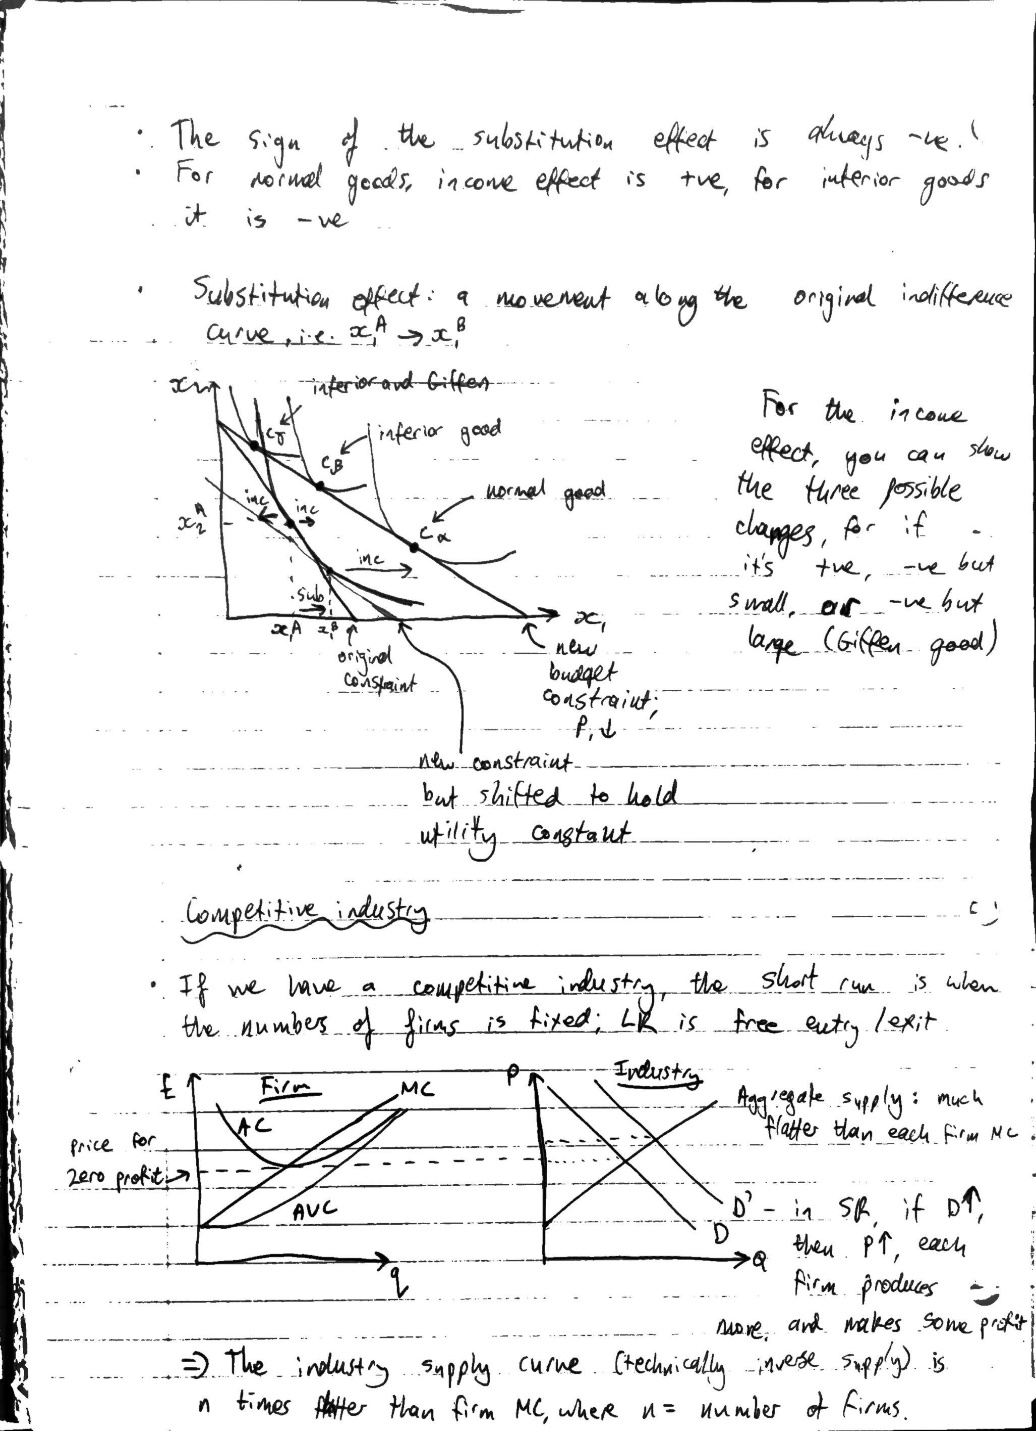 · The sign of the substitution effect is always -ve!
· For normal goods, income effect is +ve, for inferior goods
it is -ve
· Substitution effect: a movement along the original indifference
curve, i.e. x₁ᴬ → x₁ᴮ
x₂
inferior and Giffen
inferior good
normal good
C_γ
C_β
C_α
inc
inc
inc
x₂ᴬ
sub
x₁ᴬ
x₁ᴮ
x₁
original
constraint
new
budget
constraint;
P₁↓
new constraint
but shifted to hold
utility constant
For the income
effect, you can show
the three possible
changes, for if
it's +ve, -ve but
small, or -ve but
large (Giffen good)
Competitive industry
· If we have a competitive industry, the short run is when
the numbers of firms is fixed; LR is free entry/exit
£
Firm
MC
AC
Price for
zero profit
AVC
q
P
Industry
Aggregate supply: much
flatter than each firm MC
D' - in SR, if D↑,
D
then P↑, each
Q
firm produces
more, and makes some profit
⇒ The industry supply curve (technically inverse supply) is
n times flatter than firm MC, where n = number of firms.